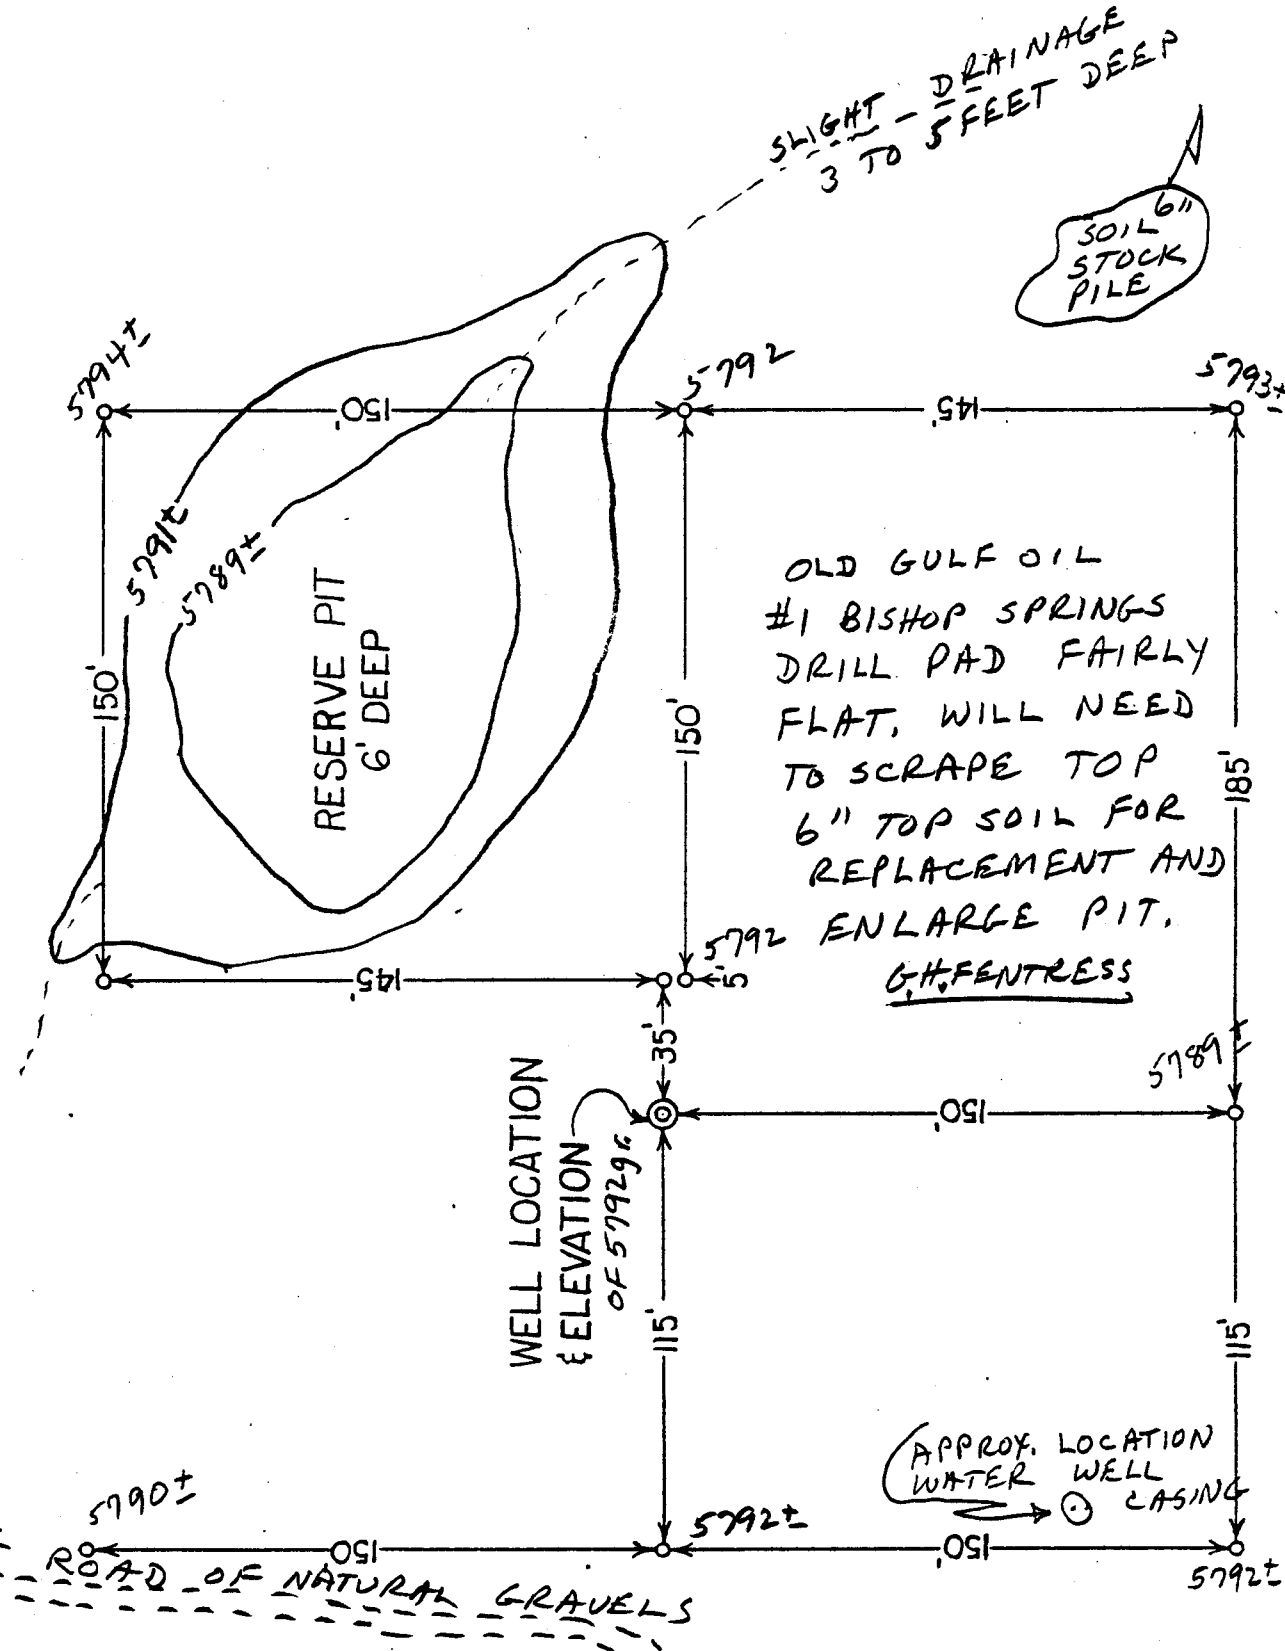 SLIGHT - DRAINAGE
3 TO 5 FEET DEEP
6"
SOIL
STOCK
PILE
5794±
150'
5792
145'
5793±
5791±
5789±
150'
RESERVE PIT
6' DEEP
150'
OLD GULF OIL
#1 BISHOP SPRINGS
DRILL PAD FAIRLY
FLAT. WILL NEED
TO SCRAPE TOP
6" TOP SOIL FOR
REPLACEMENT AND
ENLARGE PIT.
G.H. FENTRESS
185'
145'
5792
5'
35'
5789±
WELL LOCATION
& ELEVATION
OF 5792 gr.
150'
115'
115'
APPROX. LOCATION
WATER WELL
CASING
5790±
150'
5792±
150'
5792±
ROAD OF NATURAL GRAVELS